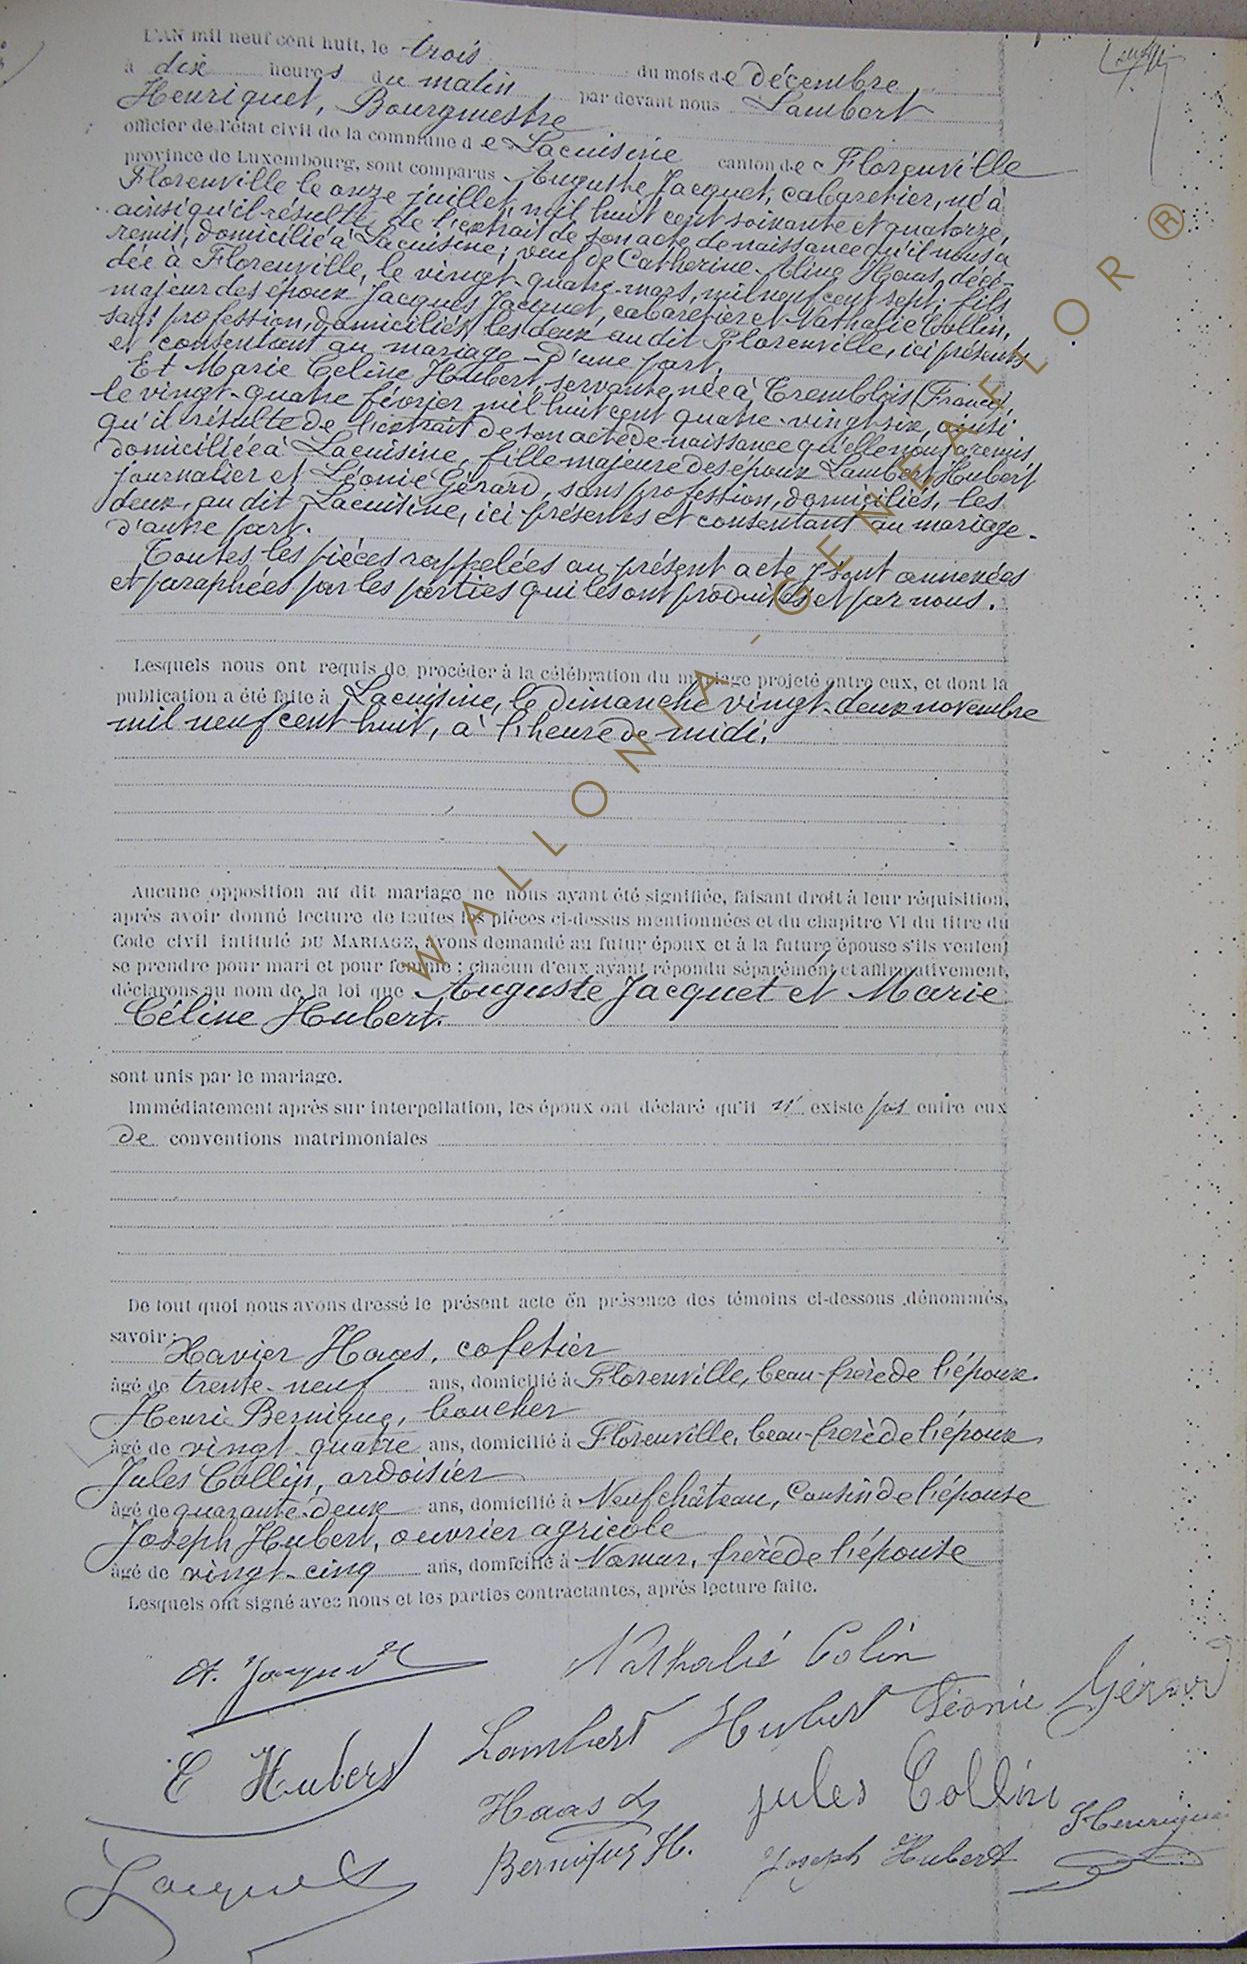 L'AN mil neuf cent huit, le trois du mois de décembre
à dix heures du matin par devant nous Lambert
Henriquet, Bourgmestre
officier de l'état civil de la commune de Lacuisine canton de Florenville
province de Luxembourg, sont comparus Auguste Jacquet, cabaretier, né à
Florenville le onze juillet mil huit cent soixante et quatorze,
ainsi qu'il résulte de l'extrait de son acte de naissance qu'il nous a
remis, domicilié à Lacuisine; veuf de Catherine Aline Haas, décé-
dée à Florenville, le vingt-quatre mars, mil neuf cent sept; fils
majeur des époux Jacques Jacquet, cabaretier et Nathalie Collin,
sans profession, domiciliés, les deux, au dit Florenville, ici présents
et consentant au mariage - d'une part,
Et Marie Céline Hubert, servante, née à Tremblois (France),
le vingt-quatre février mil huit cent quatre-vingt-six, ainsi
qu'il résulte de l'extrait de son acte de naissance qu'elle nous a remis,
domiciliée à Lacuisine, fille majeure des époux Lambert Hubert
journalier et Léonie Gérard, sans profession, domiciliés, les
deux, au dit Lacuisine, ici présents et consentant au mariage -
d'autre part.
Toutes les pièces rappelées au présent acte y sont annexées
et paraphées par les parties qui les ont produites et par nous.
Lesquels nous ont requis de procéder à la célébration du mariage projeté entre eux, et dont la
publication a été faite à Lacuisine, le dimanche vingt-deux novembre
mil neuf cent huit, à l'heure de midi.
Aucune opposition au dit mariage ne nous ayant été signifiée, faisant droit à leur réquisition,
après avoir donné lecture de toutes les pièces ci-dessus mentionnées et du chapitre VI du titre du
Code civil intitulé DU MARIAGE, avons demandé au futur époux et à la future épouse s'ils veulent
se prendre pour mari et pour femme ; chacun d'eux ayant répondu séparément et affirmativement,
déclarons au nom de la loi que Auguste Jacquet et Marie
Céline Hubert.
sont unis par le mariage.
Immédiatement après sur interpellation, les époux ont déclaré qu'il n' existe pas entre eux
de conventions matrimoniales
De tout quoi nous avons dressé le présent acte en présence des témoins ci-dessous dénommés,
savoir :
Xavier Haas, cafetier
âgé de trente-neuf ans, domicilié à Florenville, beau-frère de l'époux.
Henri Bernique, boucher
âgé de vingt-quatre ans, domicilié à Florenville, beau-frère de l'époux
Jules Collin, ardoisier
âgé de quarante-deux ans, domicilié à Neufchâteau, cousin de l'épouse
Joseph Hubert, ouvrier agricole
âgé de vingt-cinq ans, domicilié à Namur, frère de l'épouse
Lesquels ont signé avec nous et les parties contractantes, après lecture faite.
A. Jacquet
Nathalie Colin
Lambert Hubert Léonie Gérard
C Hubert
Haas X
Jules Collin
Henriquet
Bernique H.
Joseph Hubert
Jacquet
WALLONIA-GENEAFLOR ®